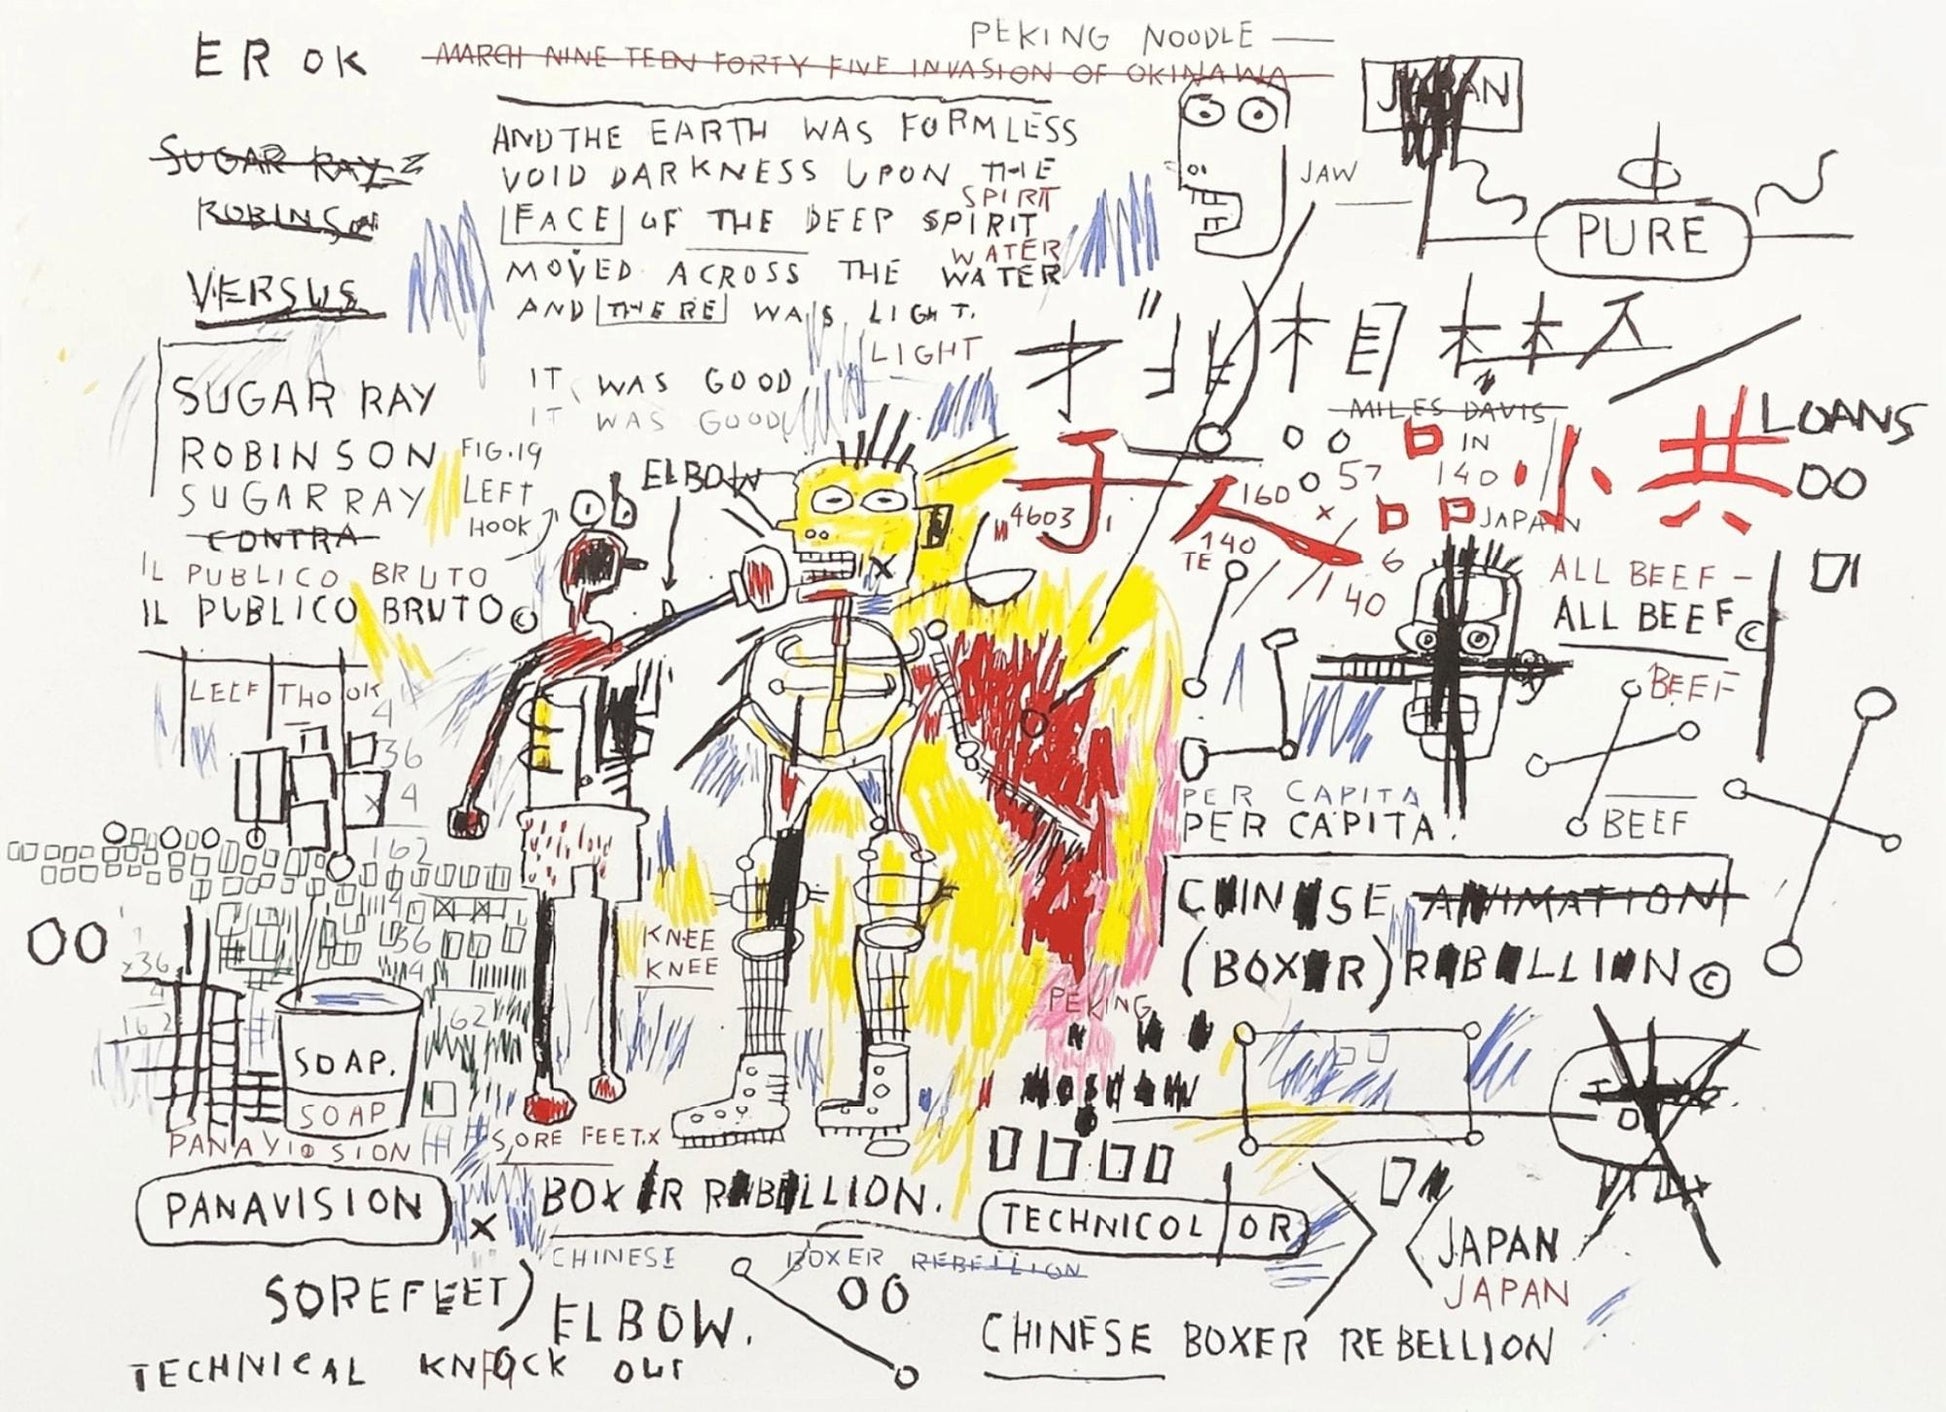 PEKING NOODLE —
ER OK
MARCH NINE TEEN FORTY FIVE INVASION OF OKINAWA
JAPAN
AND THE EARTH WAS FORMLESS
SUGAR RAY
VOID DARKNESS UPON THE
JAW
SPIRIT
ROBINSON
FACE OF THE DEEP SPIRIT
PURE
WATER
MOVED ACROSS THE WATER
VERSUS
AND THERE WAS LIGHT.
LIGHT
IT WAS GOOD
IT WAS GOOD
SUGAR RAY
ROBINSON
SUGAR RAY
CONTRA
FIG.19
LEFT
HOOK
ELBOW
MILES DAVIS
IN
LOANS
57
140
160
4603
JAPAN
140
TE
6
40
小
共
人
IL PUBLICO BRUTO
IL PUBLICO BRUTO©
ALL BEEF –
ALL BEEF©
BEEF
LEEF THO OK
4
36
x 4
162
PER CAPITA
PER CAPITA.
BEEF
CHINESE ANIMATION
(BOXER) REBELLION©
KNEE
KNEE
56
4
x36
4
162
162
PEKING
SOAP.
SOAP
PANAVISION
SORE FEET.X
PANAVISION
X
BOXER REBELLION.
TECHNICOLOR
CHINESE BOXER REBELLION
JAPAN
JAPAN
SOREFEET)
ELBOW.
CHINESE BOXER REBELLION
TECHNICAL KNOCK OUT